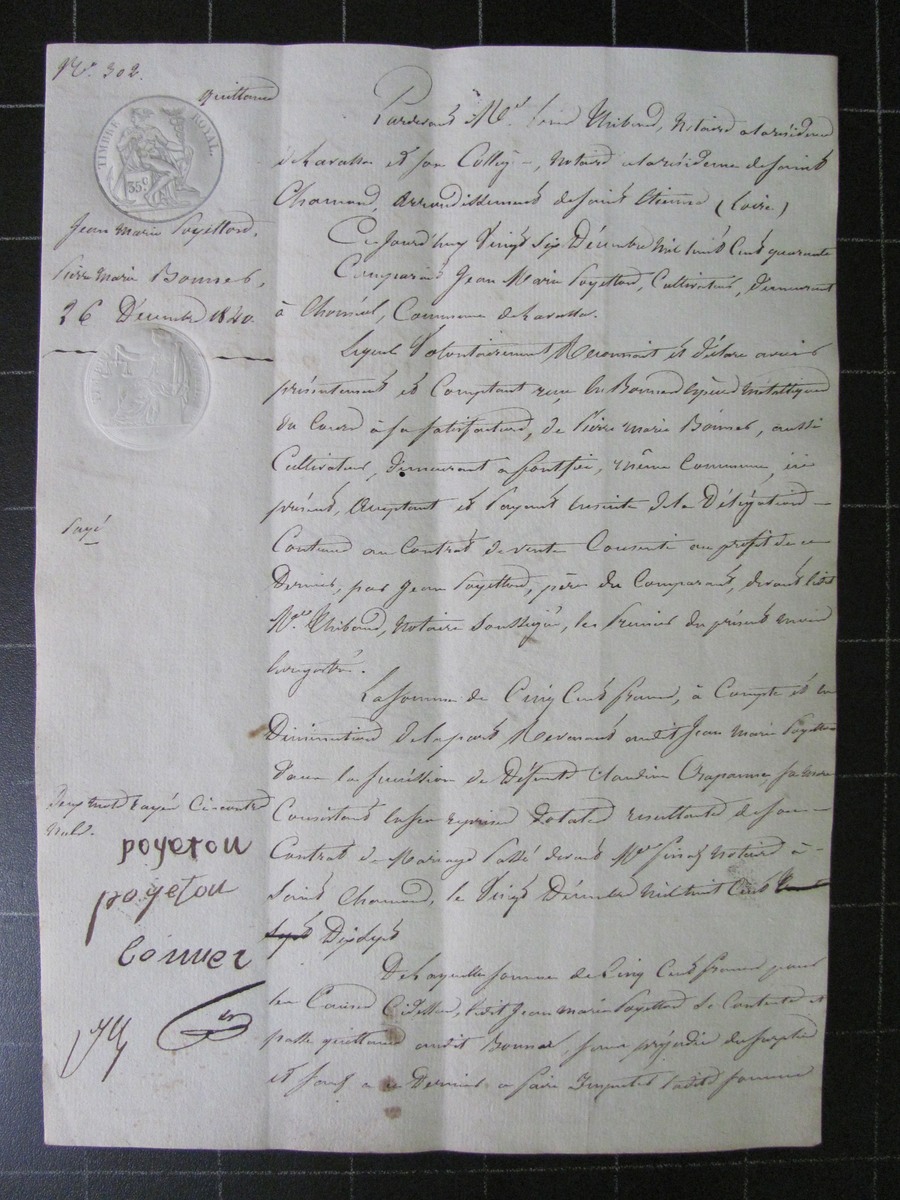 N.° 302.
quittance
TIMBRE ROYAL.
35 c
Jean Marie Poyetton,
Pierre marie Bonner,
26 Décembre 1840.
Payé
Deux mots rayés Ci-contre
nuls.
poyetou
poyetou
bonner
Pardevant Me. Thibaud, Notaire à la résidence
de Lavalla et son Collègue, Notaire à la résidence de Saint
Chamond, arrondissement de Saint Etienne (Loire)
Ce Jourd'huy Vingt Six Décembre Mil huit Cent quarante
Comparait Jean Marie Poyetton, Cultivateur, demeurant
à Commune de Lavalla.
Lequel Volontairement Reconnait et déclare avoir
présentement et Comptant reçu en Bonnes espèces métalliques
du Cours à sa satisfaction, de Pierre marie Bonner, aussi
Cultivateur, demeurant à même Commune, ici
présent, acceptant et Payant ensuite de la Délégation
Contenue au Contrat de vente Consenti au profit de ce
Dernier, par Jean Poyetton, père du Comparant, devant ledit
Me. Thibaud, Notaire Soussigné, le Premier du présent mois
Enregistré.
La Somme de Cinq Cents francs, à Compte et en
Diminution de la part Revenant audit Jean Marie Poyetton
dans la succession de Défunte Claudine sa mère
Consistant en ses reprises Dotales resultantes de son
Contrat de Mariage Passé devant Me Notaire à
Saint Chamond, le Vingt Décembre Mil huit Cent
Dixsept
De laquelle somme de Cinq Cents francs pour
les Causes Cidessus, ledit Jean Marie Poyetton Se Contente et
passe quittance audit Bonner, sans préjudice du surplus
et sauf à ce Dernier à faire Imputer ladite somme